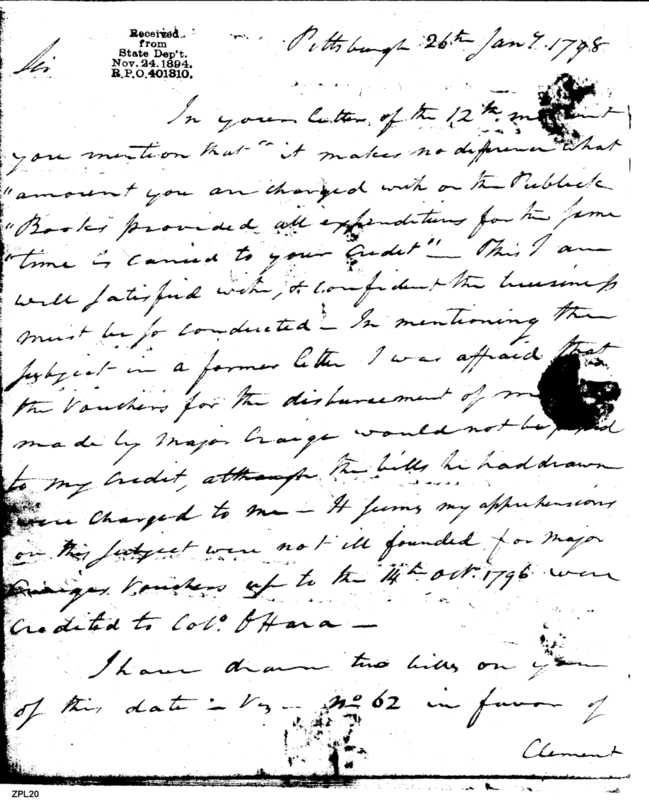 Received
from
State Dep't.
Nov. 24. 1894.
R.P.O. 401310.
Pittsburgh 26th Jany. 1798
Sir
In your letter of the 12th
you mention that "it makes no difference what
"amount you are charged with on the Publick
"Books provided all expenditures for the same
"time is carried to your Credit" — This I am
well satisfied with, & confident the business
must be so conducted — In mentioning the
subject in a former letter I was affraid that
the Vouchers for the disbursement of
made by Major Craige would not be
to my Credit, although the bills he had drawn
were charged to me — It seems my apprehensions
on this subject were not ill founded for Major
Craiges Vouchers up to the 14th Octr. 1796 were
Credited to Colo. OHara —
I have drawn two bills on you
of this date — Viz — No 62 in favor of
Clement
ZPL20